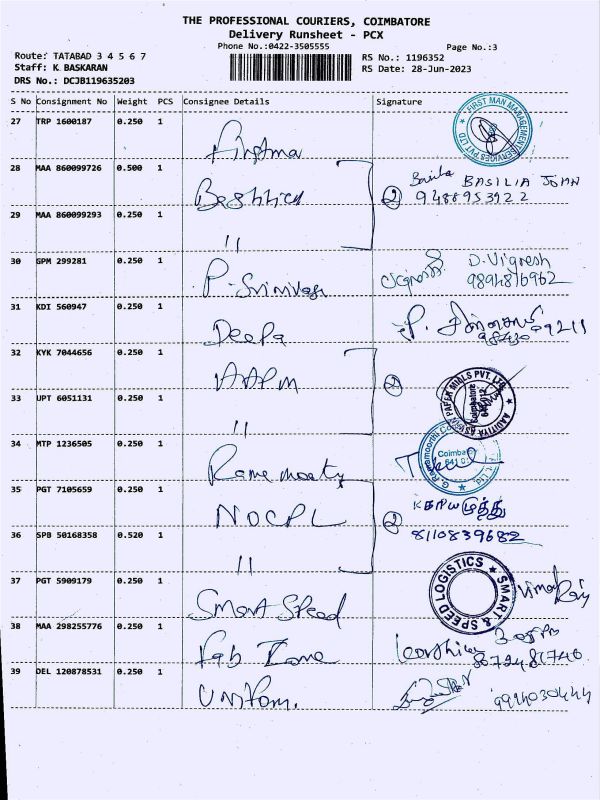 THE PROFESSIONAL COURIERS, COIMBATORE
Delivery Runsheet - PCX
Phone No.:0422-3505555
Page No.:3
Route: TATABAD 3 4 5 6 7
Staff: K BASKARAN
DRS No.: DCJB119635203
RS No.: 1196352
RS Date: 28-Jun-2023
S No Consignment No Weight PCS Consignee Details Signature
27 TRP 1600187 0.250 1
FIRST MAN MANAGEMENT SERVICES PVT LTD
28 MAA 860099726 0.500 1
② BASILIA JOHN
9488953922
29 MAA 860099293 0.250 1
"
30 GPM 299281 0.250 1 P. Srinivasa
D. Vignesh
9894816962
31 KDI 560947 0.250 1 Deepa
32 KYK 7044656 0.250 1 AAPM
②
33 UPT 6051131 0.250 1
"
AADITYA ASWIN PAPER MILLS PVT. LTD.
Coimbatore
34 MTP 1236505 0.250 1
Coimbatore
35 PGT 7105659 0.250 1 NOCPL
②
8110839682
36 SPB 50168358 0.520 1
"
37 PGT 5909179 0.250 1 Smart Speed
SMART & SPEED LOGISTICS
38 MAA 298255776 0.250 1 Fab Zone
39 DEL 120878531 0.250 1 Uniform.
9994030444